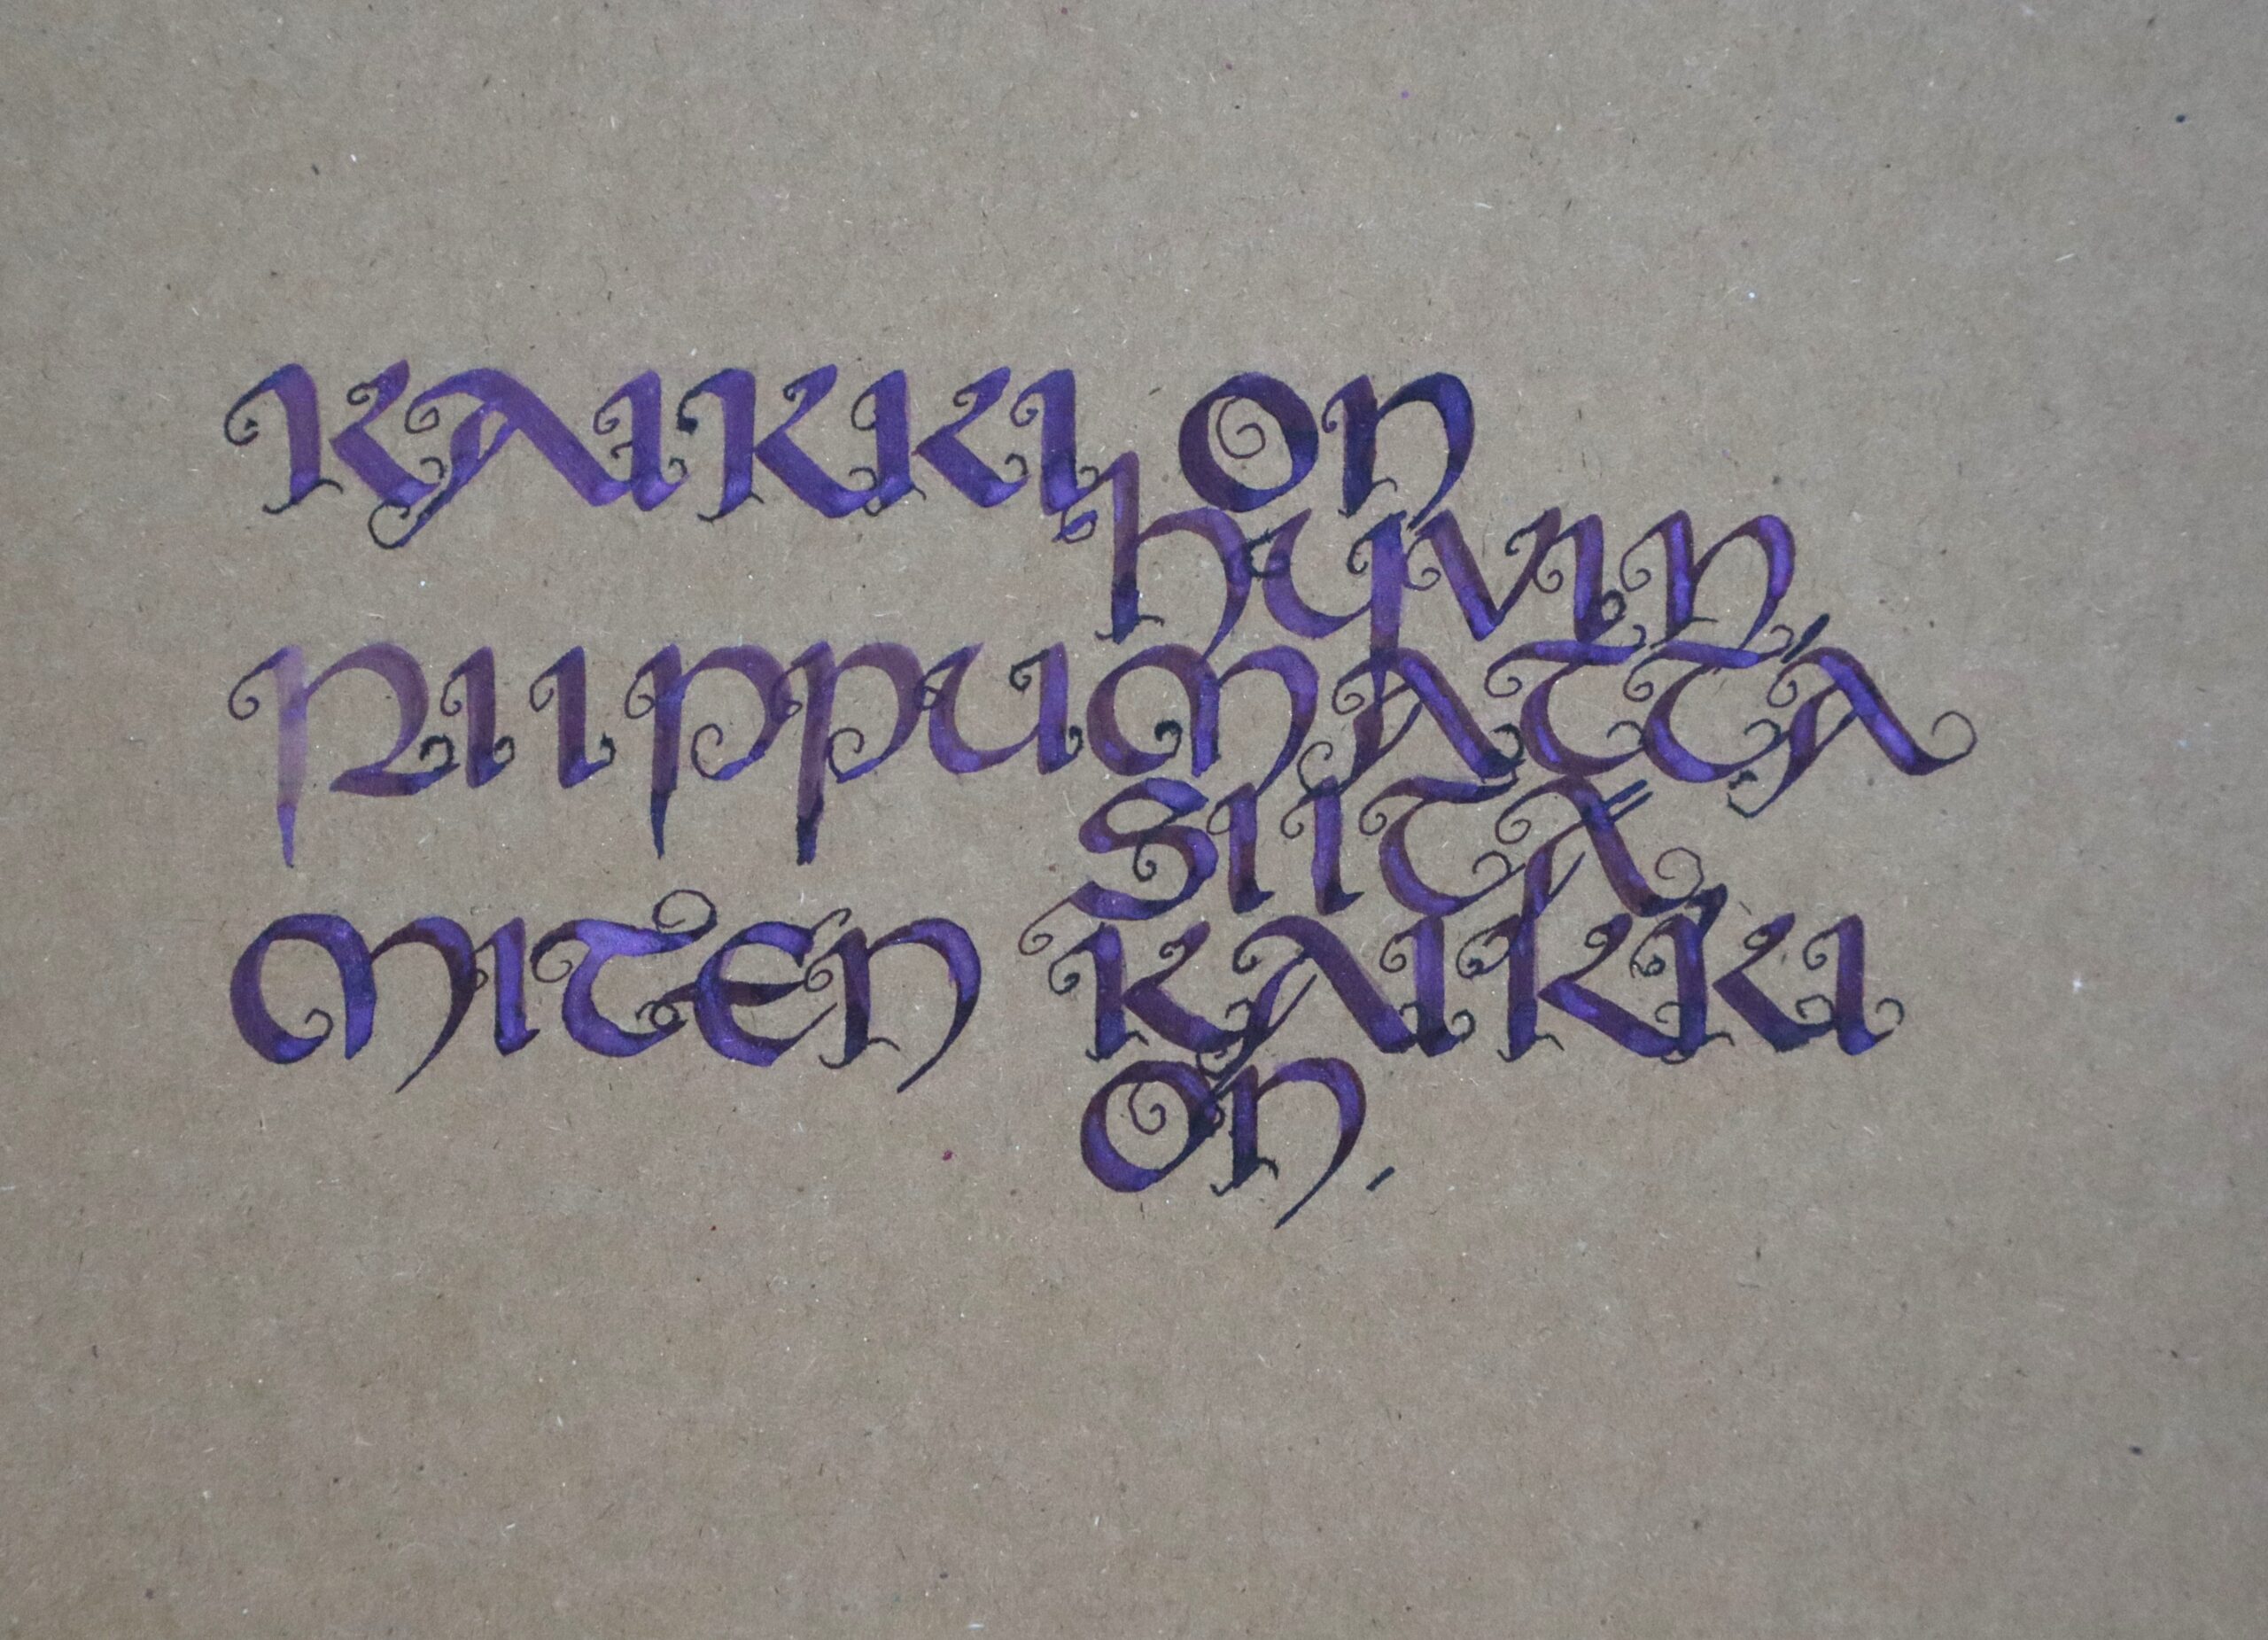 KAIKKI ON
HYVIN,
RIIPPUMATTA
SIITÄ
MITEN KAIKKI
ON.